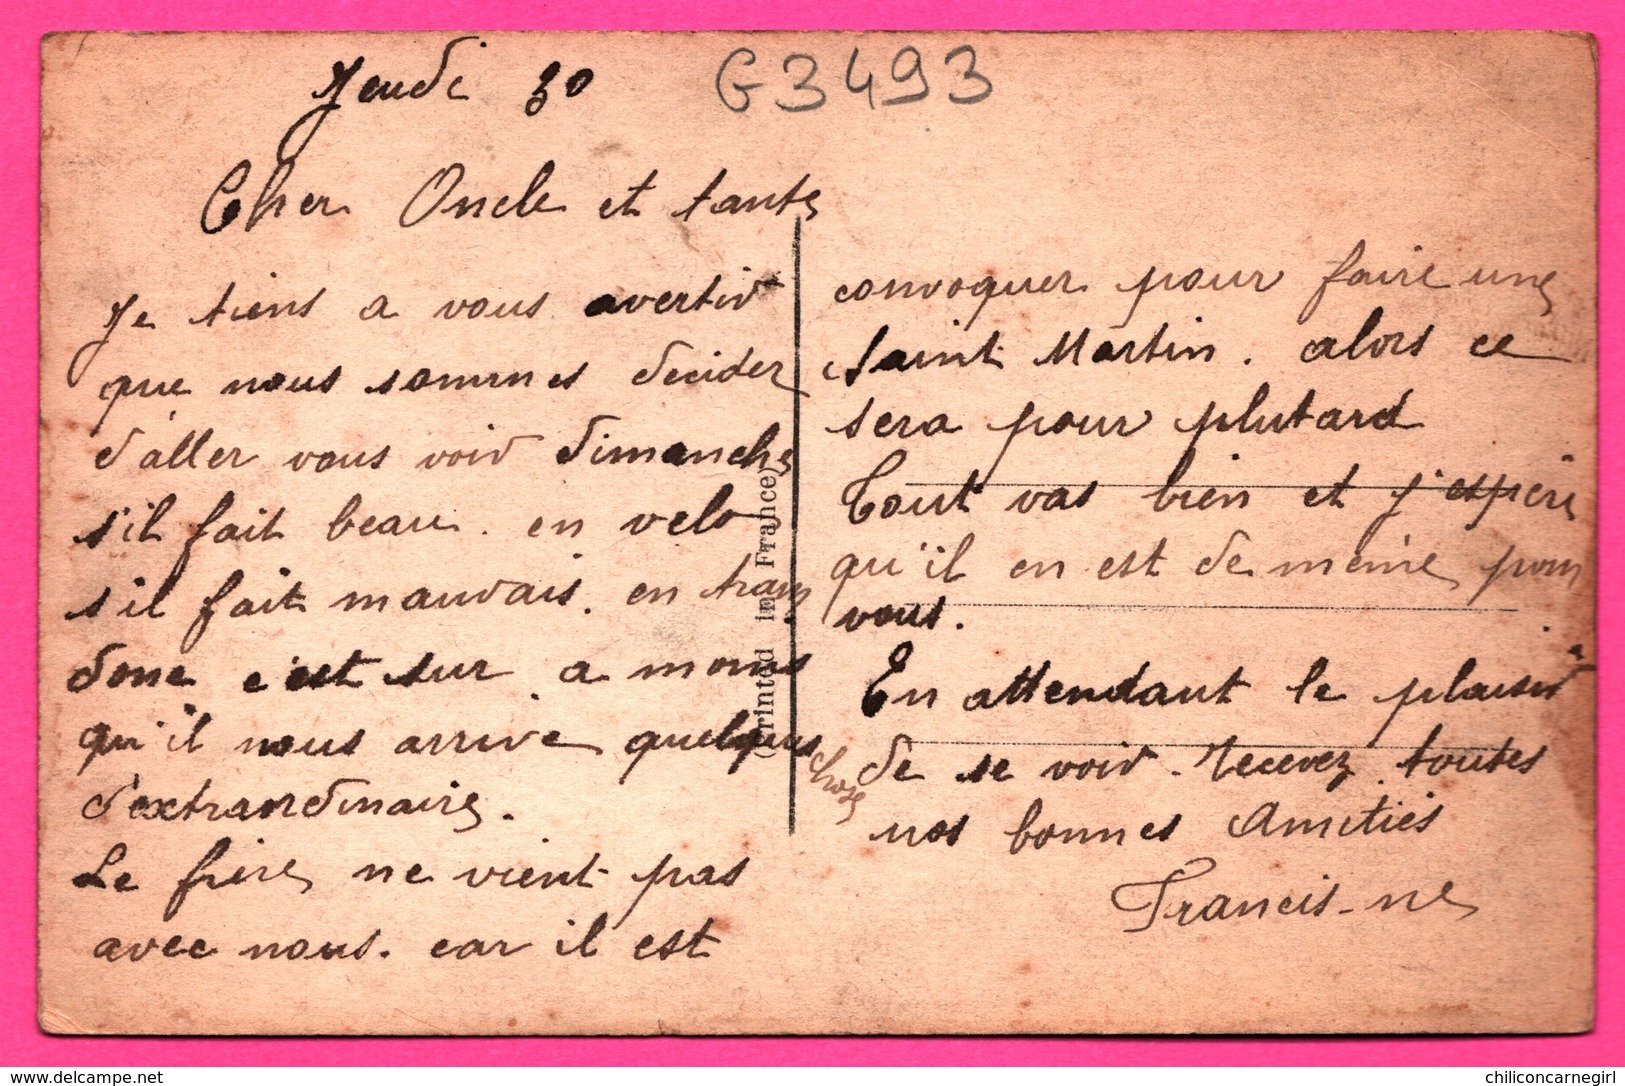 Jeudi 30
G3493
Cher Oncle et tante
Je tiens a vous avertir
que nous sommes decider
d'aller vous voir dimanche
s'il fait beau. en velo
s'il fait mauvais. en tram
donc c'est sur a moins
qu'il nous arrive quelques
chose
d'extraordinaire.
Le frère ne vient pas
avec nous. car il est
convoquer pour faire une
Saint Martin. alors ce
sera pour plutard
Tout vas bien et j'espère
qu'il en est de même pour
vous.
En attendant le plaisir
de se voir. recevez toutes
nos bonnes Amitiés
Francis-ne
(Printed in France)
delcampe.net
chiliconcarnegirl